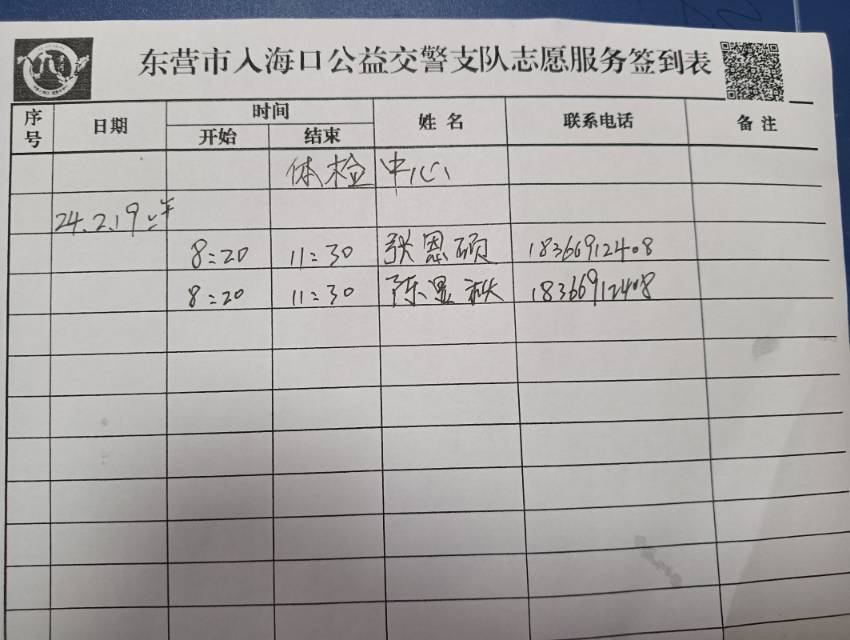 东营市入海口公益交警支队志愿服务签到表
序号 日期 时间 姓名 联系电话 备注
开始 结束
体检中心
24.2.19
8:20 11:30 张恩硕 18366912408
8:20 11:30 陈显 18366912408